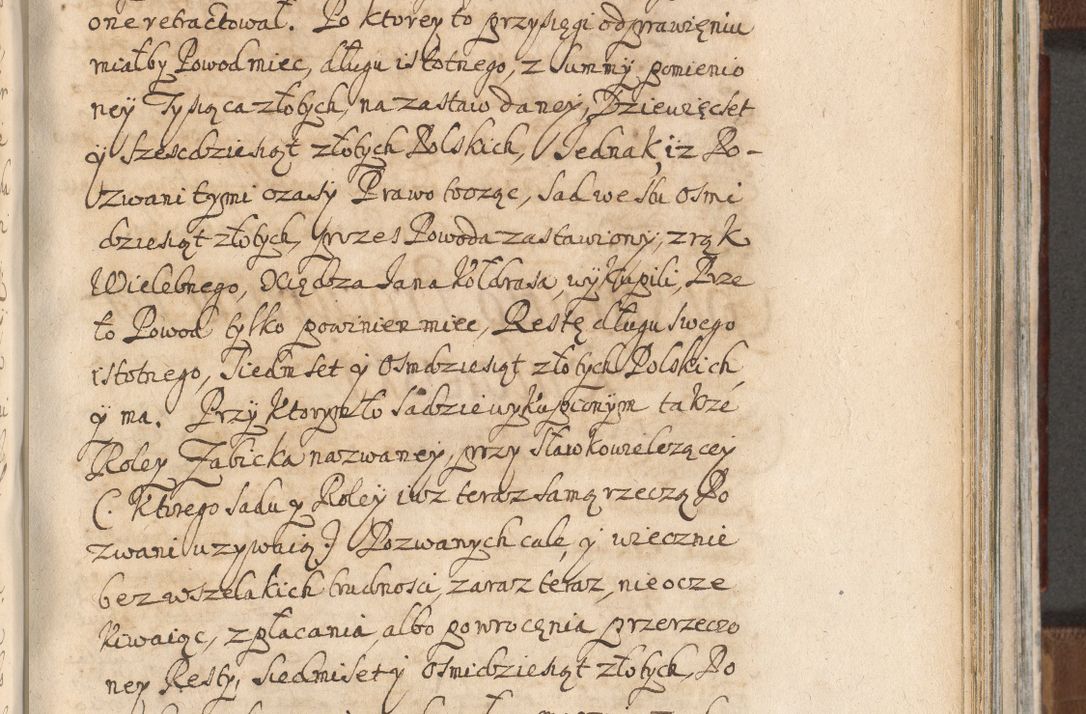 one retractował. Po ktorey to przysięgi odprawięniu
miałby Powod miec, długu istotnego, z Summy pomienio
ney Tysiąca złotych, na zastaw daney, Dziewięcset
y szescdziesiąt złotych Polskich, Iednak, iz Po-
zwani tymi czasy Prawo tocząc, sad we stu osmi
dziesiąt złotych, przes Powoda zastawiony, z rąk
Wielebnego, Xiędza Iana Kołdrasa, wykupili, Prze
to Powod tylko powinien miec, Resztę długu swego
istotnego, Siedmset y osmdziesiąt złotych Polskich
y ma. Przy ktorym to sadzie wykupionym także
Roley Zabicka nazwaney, przy Sławkowie lezącey
(. Ktorego sadu y Roley iuz teraz samą rzeczą Po
zwani uzywaią.) Pozwanych cale, y wiecznie
bez wszelakich trudnosci, zaraz teraz, nie ocze
kiwaiąc, zpłacania albo powrocęnia przerzeczo
ney Resty, Siedmiset y osmidziesiąt złotych, Po